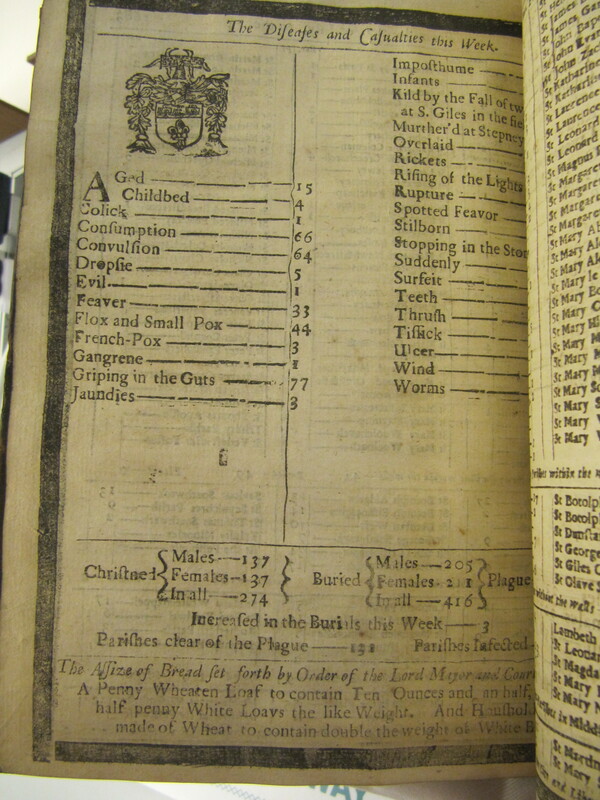 The Diſeaſes and Caſualties this Week.
AGed 15
Childbed 4
Colick 1
Conſumption 66
Convulſion 64
Dropſie 5
Evil 1
Feaver 33
Flox and Small Pox 44
French-Pox 3
Gangrene 1
Griping in the Guts 77
Jaundies 3
Impoſthume
Infants
Kild by the Fall of tw
at S. Giles in the fie
Murther'd at Stepney
Overlaid
Rickets
Riſing of the Lights
Rupture
Spotted Feavor
Stilborn
Stopping in the Stom
Suddenly
Surfeit
Teeth
Thruſh
Tiſſick
Ulcer
Wind
Worms
Chriſtned Males 137 Females 137 In all 274 Buried Males 205 Females 211 In all 416 Plague
Increaſed in the Burials this Week 3
Pariſhes clear of the Plague 131 Pariſhes Infected
The Aſſize of Bread ſet forth by Order of the Lord Major and Cour
A Penny Wheaten Loaf to contain Ten Ounces and an half,
half penny White Loavs the like Weight. And Houſhol
made of Wheat to contain double the weight of White B
St James Ga
St John Bap
St John Evan
St John Zac
St Katharine
St Katharine
St Laurence
St Laurence
St Leonard
St Leonard
St Magnus
St Margaret
St Margaret
St Margaret
St Margar
St Mary Ab
St Mary Al
St Mary Al
St Mary le
St Mary Bo
St Mary C
St Mary Hi
St Mary M
St Mary
St Mary
St Mary
St Mary S
St Mary S
St Mary
St Mary W
riſhes within the
St Botolp
St Botolp
St Dunſtan
St George
St Giles C
St Olave S
without the Walls
Lambeth
St Leonar
St Magda
St Mary
St Mary N
St Martin
St Mary
WAY